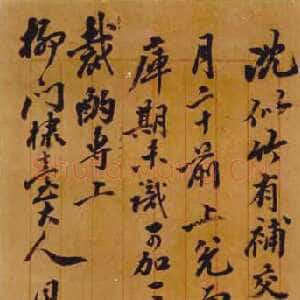 沈似竹有補交
月二十前上兌
庫期未識可加
裁酌專上
柳门棣臺大人